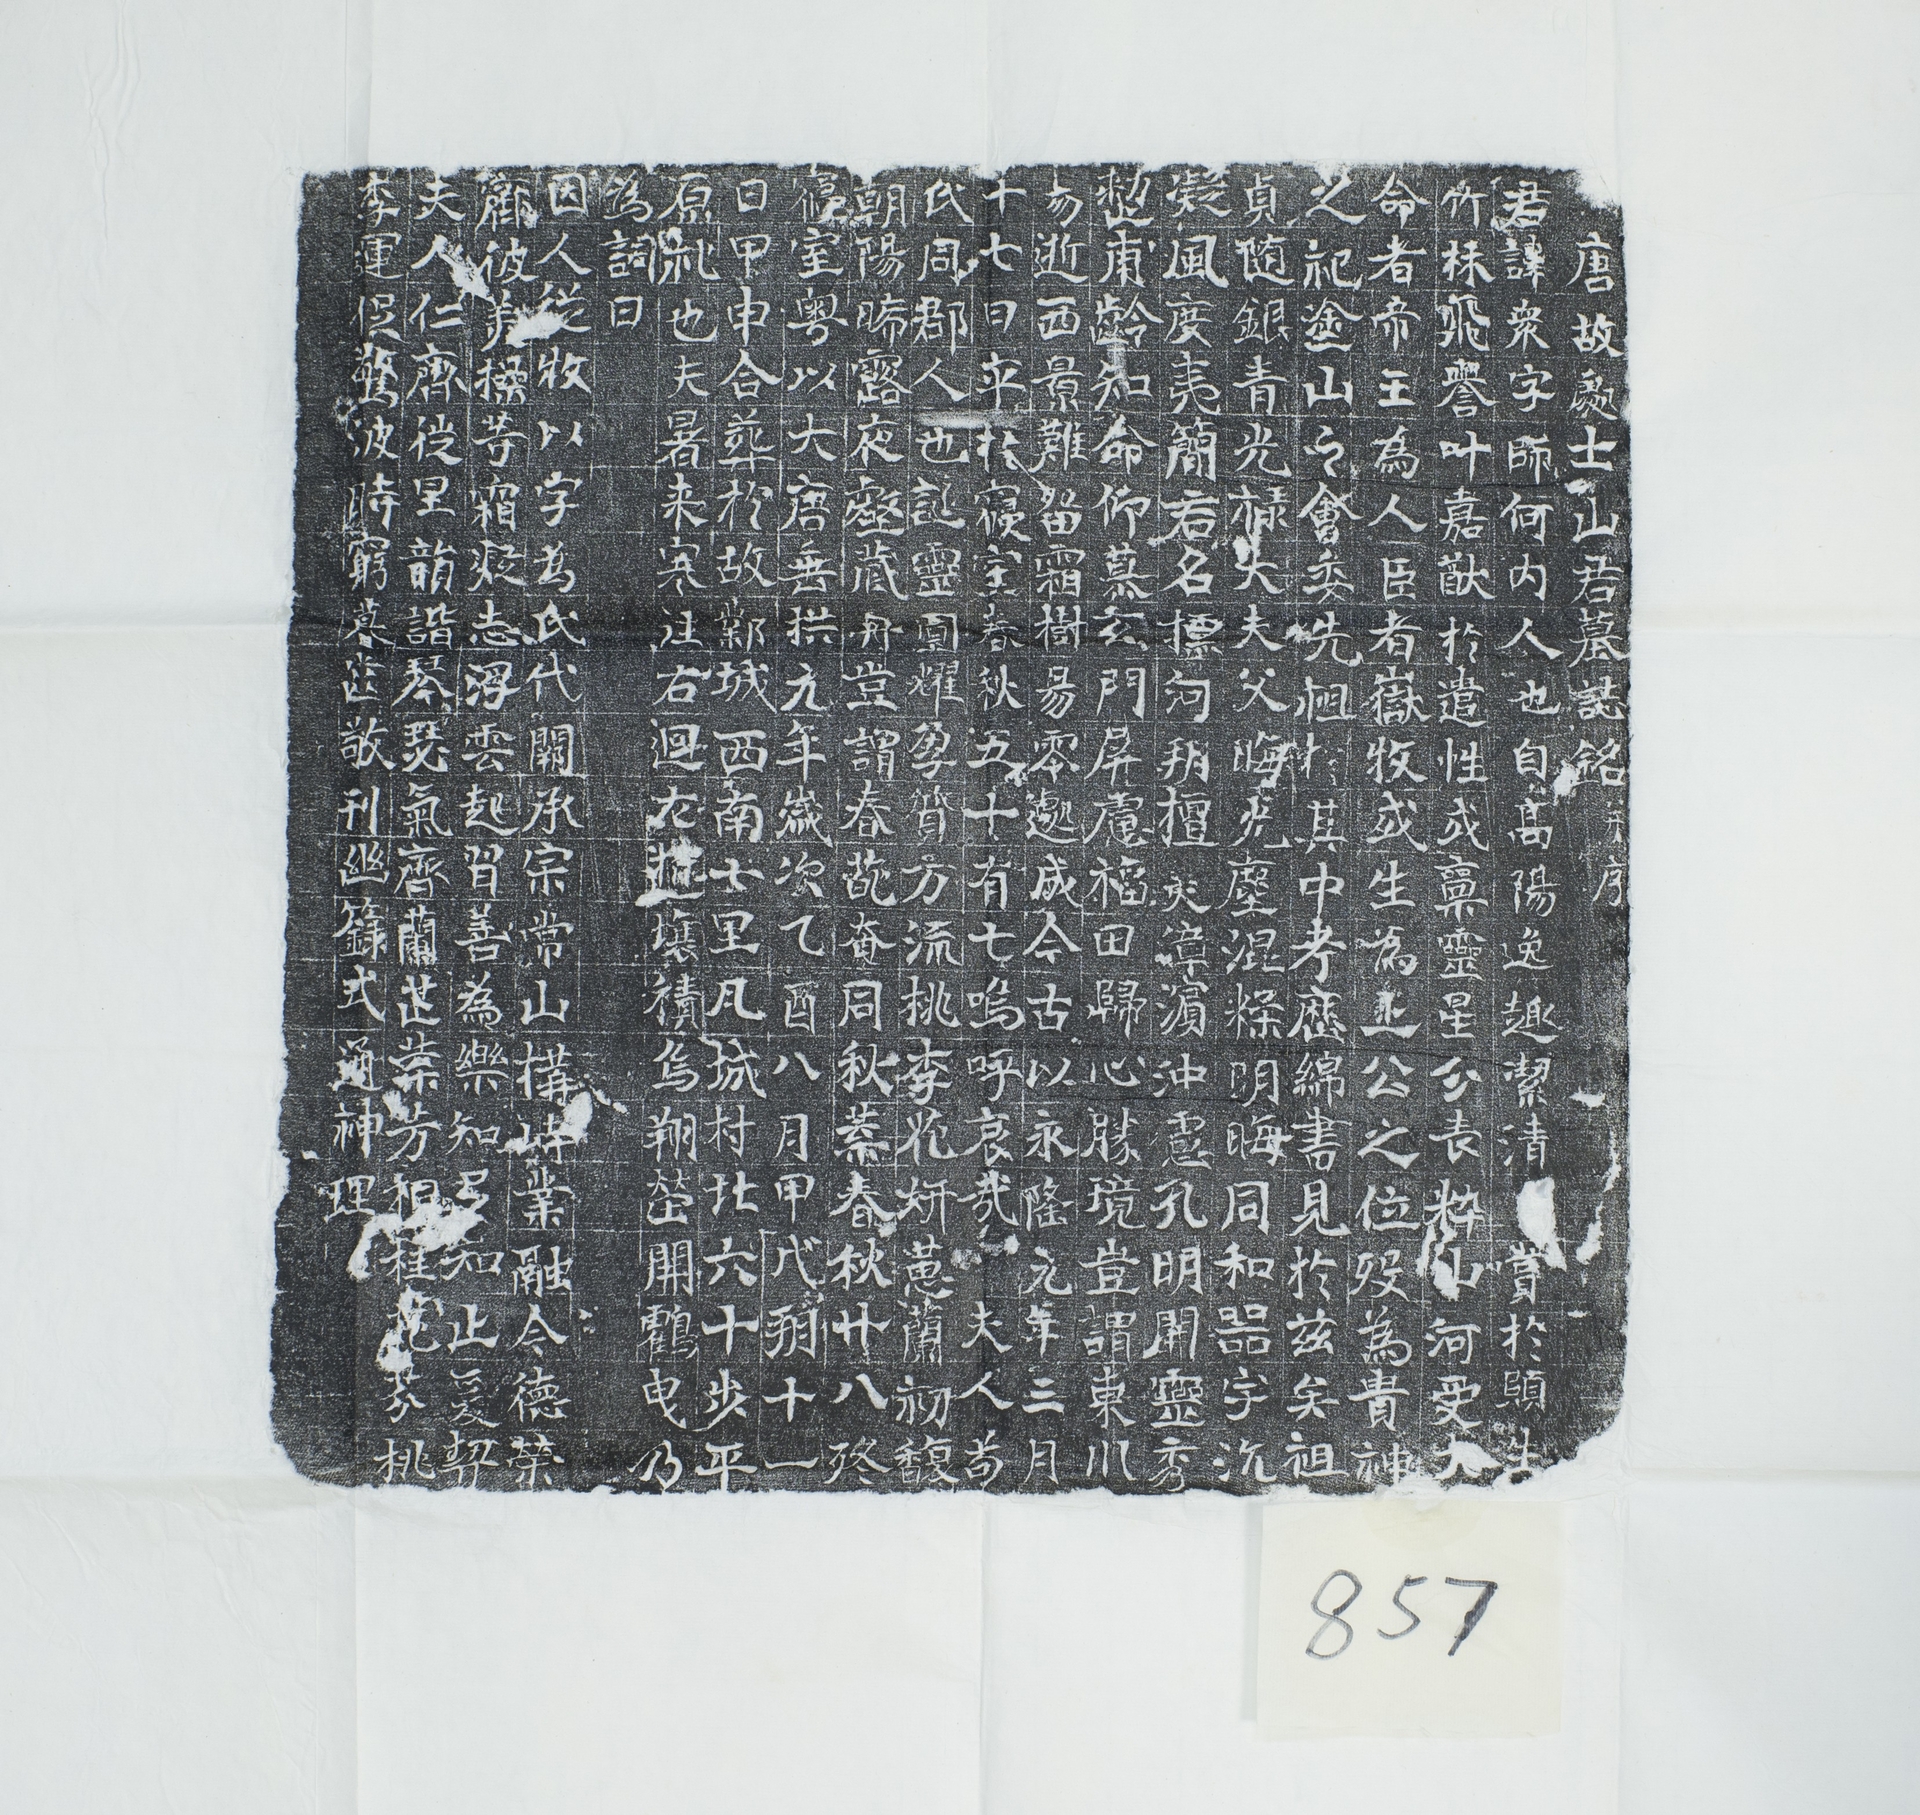 唐故處士山君墓誌銘并序
君諱衆字師河內人也自高陽逸趣潔清賞於頤生
竹林飛譽叶嘉猷於遣性或稟靈星分表粹山河受大
命者帝王為人臣者嶽牧或生為上公之位歿為貴神
之祀塗山之會委先祖於其中考歷綿書見於茲矣祖
貞隨銀青光祿大夫父晦光塵混糅明晦同和器宇沉
凝風度夷簡君名標河朔檀美漳濱沖慮孔明開靈秀
甫齡知命仰慕玄門屏慮福田歸心勝境豈謂東川
易逝西景難留霜樹易零遽成今古以永隆元年三月
十七日卒於寢室春秋五十有七嗚呼哀哉夫人苟
氏同郡人也誕靈圓耀孕質方流桃李花妍蕙蘭初馥
朝陽晞露夜壑藏舟豈謂春蘢奄同秋蕣春秋廿八終
寢室粵以大唐垂拱元年歲次乙酉八月甲戌朔十一
日甲申合葬於故鄴城西南七里凡城村北六十步平
原禮也夫暑來寒往右迴左壤積烏翔塋開鶴曳乃
為詞曰
因人從牧以字為氏代閥承宗常山構峙業融令德榮
齊彼美操等霜凝志浮雲起習善為樂知足知止爰契
夫人仁齊從里韻諧琴瑟氣齊蘭芷葉芳相桂花芬桃
李運促驚波時窮暮晷敬刊幽籙式通神理
857